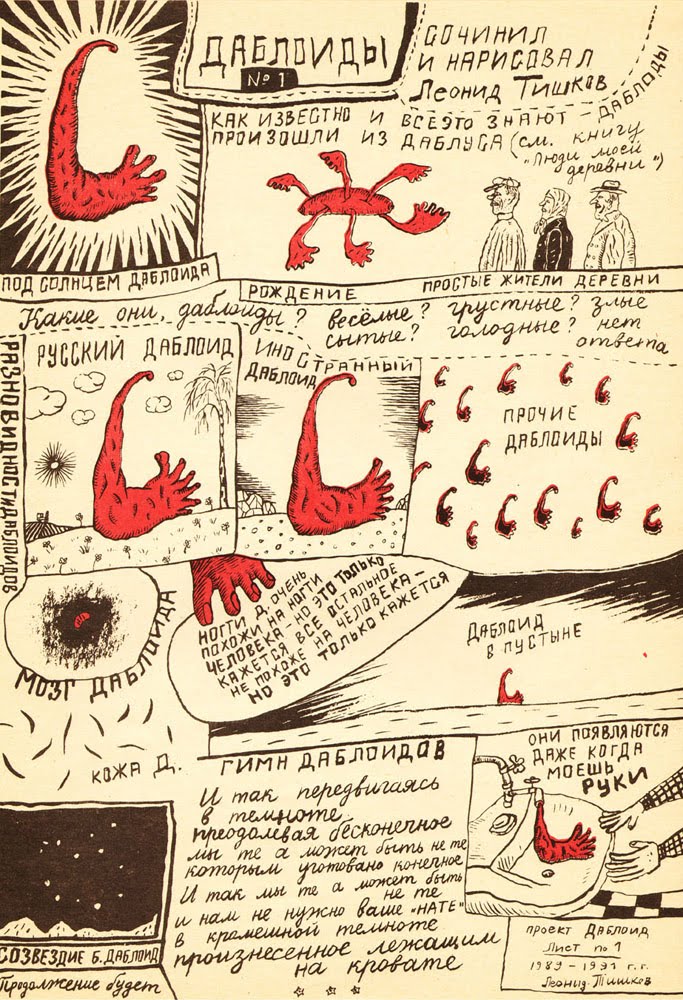 ДАБЛОИДЫ
№ 1
СОЧИНИЛ
И НАРИСОВАЛ
Леонид Тишков
КАК ИЗВЕСТНО И ВСЕ ЭТО ЗНАЮТ - ДАБЛОИДЫ
ПРОИЗОШЛИ ИЗ ДАБЛУСА (см. книгу
"Люди моей
деревни")
ПОД СОЛНЦЕМ ДАБЛОИДА
РОЖДЕНИЕ
ПРОСТЫЕ ЖИТЕЛИ ДЕРЕВНИ
Какие они, даблоиды? весёлые? грустные? злые
сытые? голодные? нет
ответа
РАЗНОВИДНОСТИ ДАБЛОИДОВ
РУССКИЙ ДАБЛОИД
ИНОСТРАННЫЙ
ДАБЛОИД
ПРОЧИЕ
ДАБЛОИДЫ
МОЗГ ДАБЛОИДА
НОГТИ Д. ОЧЕНЬ
ПОХОЖИ НА НОГТИ
ЧЕЛОВЕКА - НО ЭТО ТОЛЬКО
КАЖЕТСЯ ВСЕ ОСТАЛЬНОЕ
НЕ ПОХОЖЕ НА ЧЕЛОВЕКА -
НО ЭТО ТОЛЬКО КАЖЕТСЯ
ДАБЛОИД
В ПУСТЫНЕ
КОЖА Д.
ГИМН ДАБЛОИДОВ
И так передвигаясь
в темноте
преодолевая бесконечное
мы те а может быть не те
которым уготовано конечное
И так мы те а может быть
не те
и нам не нужно ваше "НАТЕ"
в кромешной темноте
произнесенное лежащим
на кровате
ОНИ ПОЯВЛЯЮТСЯ
ДАЖЕ КОГДА
МОЕШЬ
РУКИ
СОЗВЕЗДИЕ Б. ДАБЛОИД
Продолжение будет
проект Даблоид
Лист № 1
1989 - 1991 г.г.
Леонид Тишков